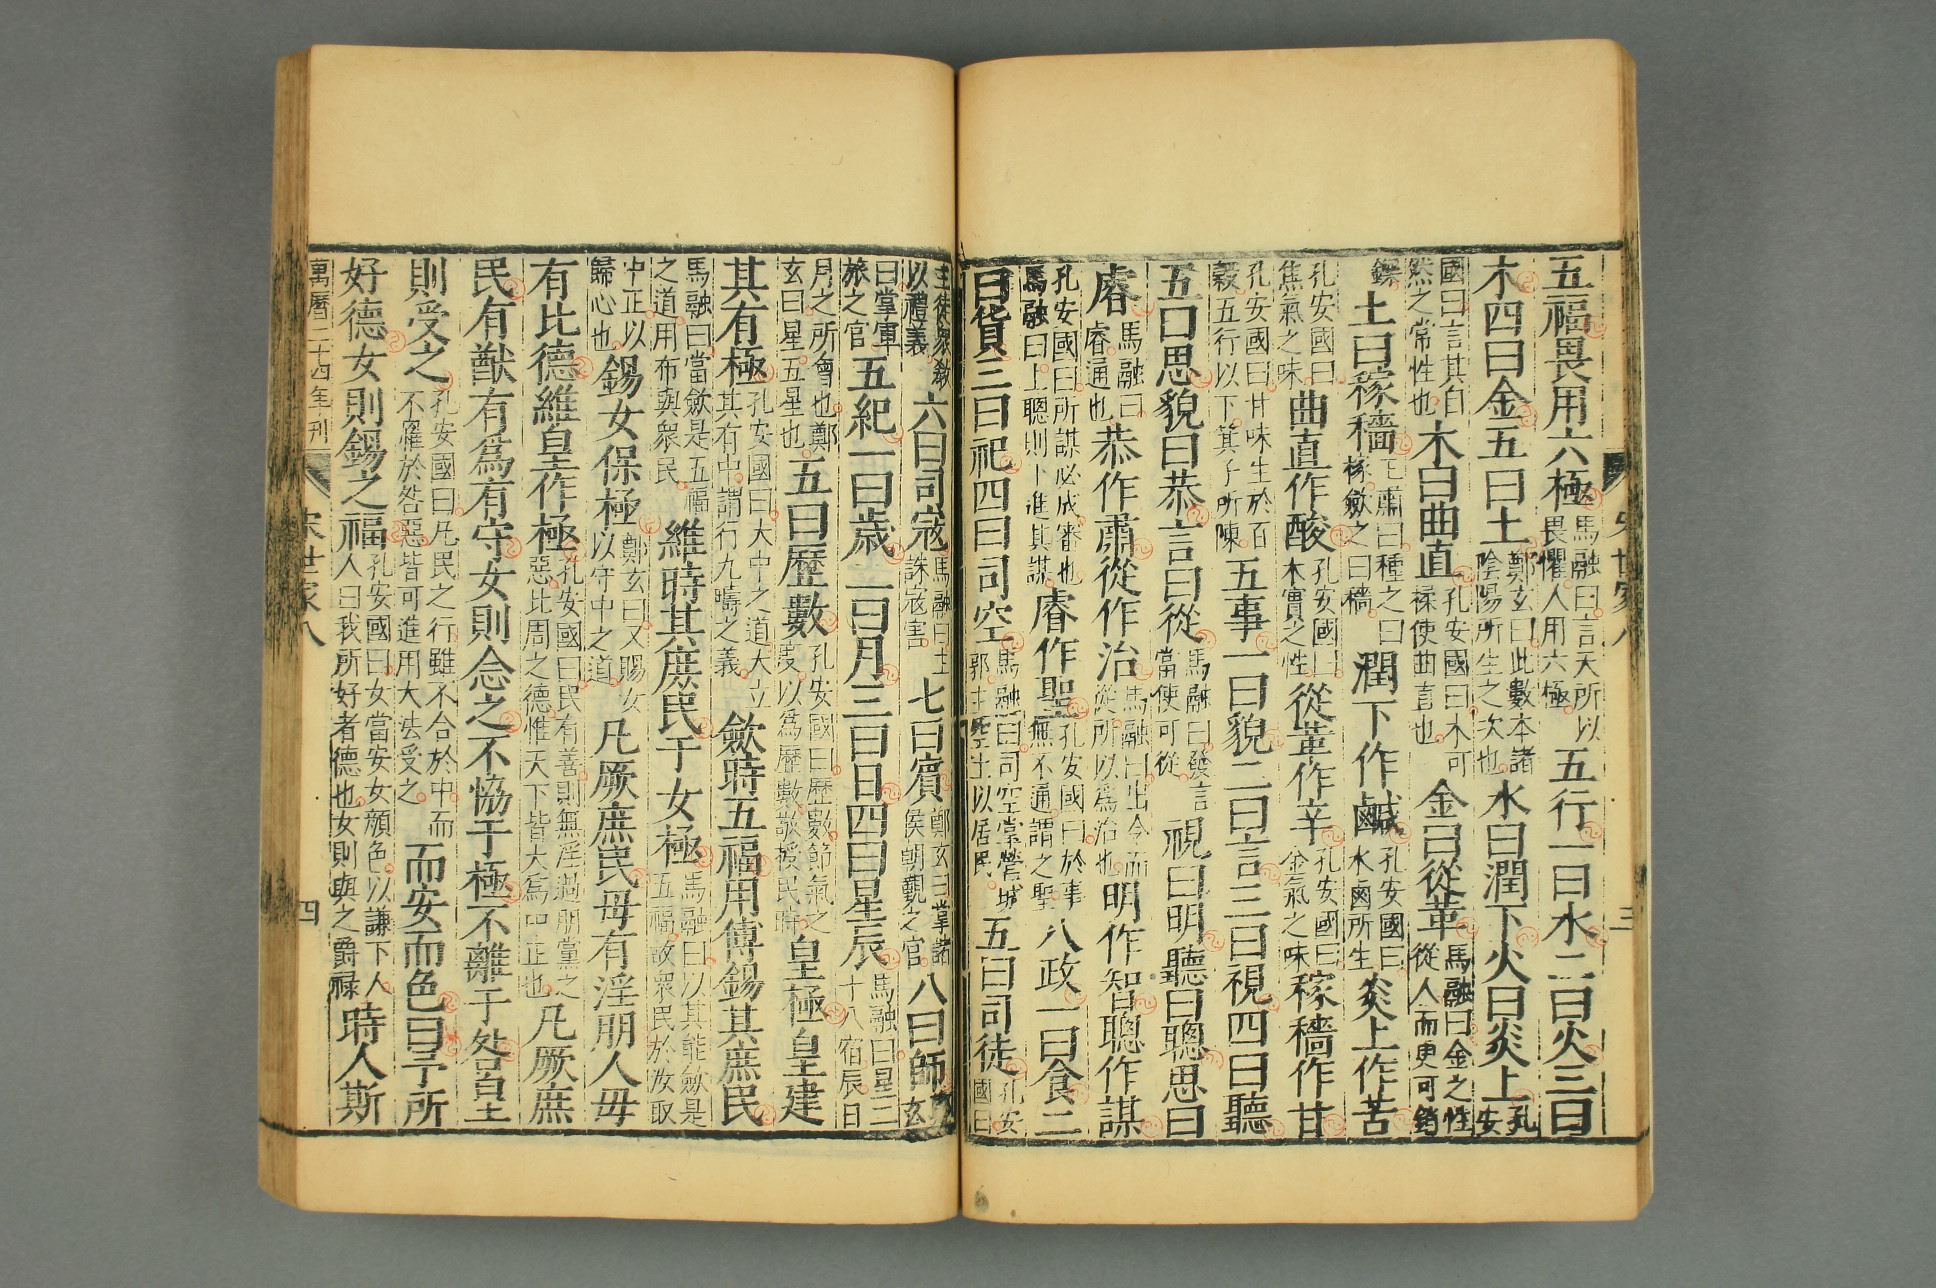 五福畏用六極馬融曰言天所以畏懼人用六極五行一曰水二曰火三曰
木四曰金五曰土鄭玄曰此數本諸陰陽所生之次也水曰潤下火曰炎上孔安
國曰言其自然之常性也木曰曲直孔安國曰木可揉使曲直也金曰從革馬融曰金之性從人而更可銷
鑠土曰稼穡王肅曰種之曰稼斂之曰穡潤下作鹹孔安國曰水鹵所生炎上作苦
孔安國曰焦氣之味曲直作酸孔安國曰木實之性從革作辛孔安國曰金氣之味稼穡作甘
孔安國曰甘味生於百穀五行以下箕子所陳五事一曰貌二曰言三曰視四曰聽
五曰思貌曰恭言曰從馬融曰發言當使可從視曰明聽曰聰思曰
睿馬融曰睿通也恭作肅從作治馬融曰出令而從所以為治也明作智聰作謀
孔安國曰所謀必成審也馬融曰上聰則下進其謀睿作聖孔安國曰於事無不通謂之聖八政一曰食二
曰貨三曰祀四曰司空馬融曰司空掌營城郭主空土以居民五曰司徒孔安國曰
主徒衆敎以禮義六曰司寇馬融曰主誅寇害七曰賓鄭玄曰掌諸侯朝覲之官八曰師鄭玄
曰掌軍旅之官五紀一曰歲二曰月三曰日四曰星辰馬融曰星二十八宿辰日
月之所會也鄭玄曰星五星也五曰歷數孔安國曰歷數節氣之度以爲歷數敬授民時皇極皇建
其有極孔安國曰大中之道大立其有中謂行九疇之義斂時五福用傅錫其庶民
馬融曰當斂是五福之道用布與衆民維時其庶民于女極馬融曰以其能斂是五福故衆民於汝取
中正以歸心也錫女保極鄭玄曰又賜女以守中之道凡厥庶民毋有淫朋人毋
有比德維皇作極孔安國曰民有善則無淫過朋黨之惡比周之德惟天下皆大爲中正也凡厥庶
民有猷有爲有守女則念之不協于極不離于咎皇
則受之孔安國曰凡民之行雖不合於中而不罹於咎惡皆可進用大法受之而安而色曰予所
好德女則錫之福孔安國曰女當安女顏色以謙下人人曰我所好者德也女則與之爵祿時人斯
萬曆二十四年刊
宋世家八
四